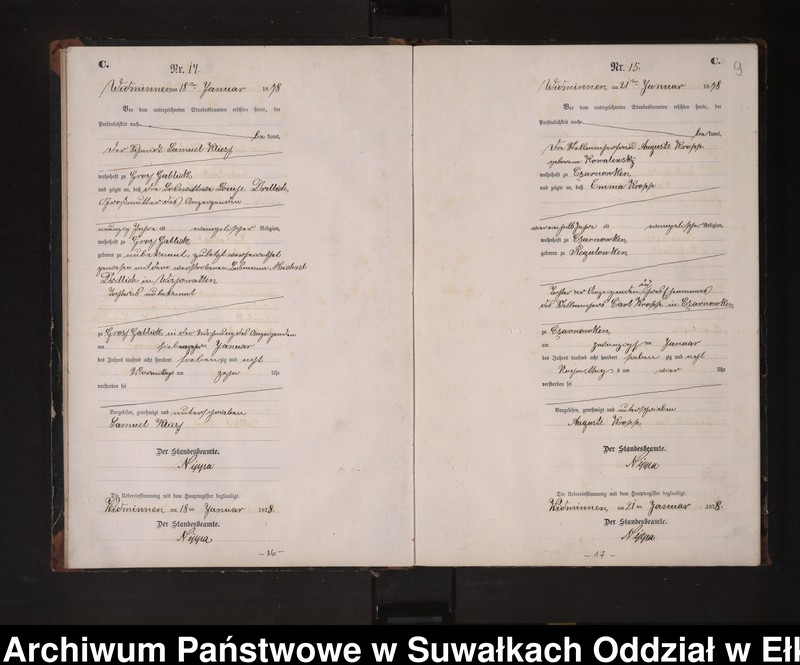 C.
Nr. 14.
Widminnen, am 18ten Januar 1878
Vor dem unterzeichneten Standesbeamten erschien heute, der
Persönlichkeit nach
be kannt,
der Schmidt Samuel
wohnhaft zu Gross Gablick,
und zeigte an, daß die Louise
Großmutter des Anzeigenden
neunzig Jahre alt evangelischer Religion,
wohnhaft zu Gross Gablick,
geboren zu unbekannt, zuletzt verheirathet
gewesen mit dem verstorbenen Michael
in
Tochter des unbekannt
zu Gross Gablick in der Wohnung des Anzeigenden
am Januar
des Jahres tausend acht hundert sieben zig und acht
Vormittags um zehn Uhr
verstorben sei
Vorgelesen, genehmigt und unterschrieben
Samuel
Der Standesbeamte.
Nippa
Die Uebereinstimmung mit dem Hauptregister beglaubigt.
Widminnen, am 18ten Januar 1878.
Der Standesbeamte.
Nippa
- 16 -
C.
9
Nr. 15.
Widminnen, am 21ten Januar 1878
Vor dem unterzeichneten Standesbeamten erschien heute, der
Persönlichkeit nach
be kannt,
die Auguste Kropp
geborene Kowalewsky
wohnhaft zu Czarnowken,
und zeigte an, daß Emma Kropp
Jahre alt evangelischer Religion,
wohnhaft zu Czarnowken,
geboren zu Regulowken
Tochter der Anzeigenden und ihres Ehemannes
des Carl Kropp in Czarnowken,
zu Czarnowken,
am zwanzigsten Januar
des Jahres tausend acht hundert sieben zig und acht
Nachmittags um vier Uhr
verstorben sei
Vorgelesen, genehmigt und unterschrieben
Auguste Kropp
Der Standesbeamte.
Nippa
Die Uebereinstimmung mit dem Hauptregister beglaubigt.
Widminnen, am 21ten Januar 1878.
Der Standesbeamte.
Nippa
- 17 -
Archiwum Państwowe w Suwałkach Oddział w Eł